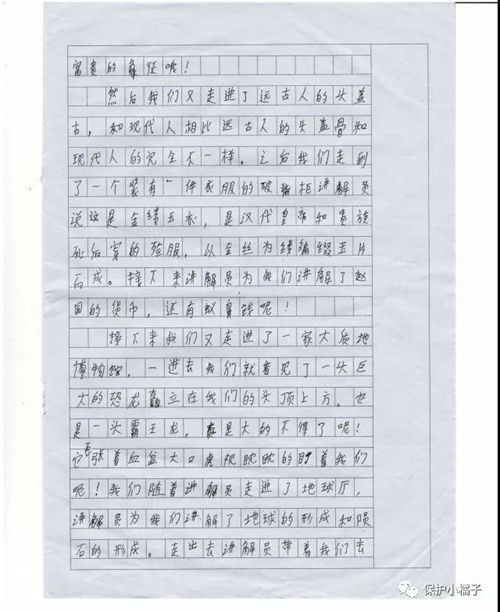 富贵的象征哦！
然后我们又走进了远古人的头盖
古，和现代人相比远古人的头盖骨和
现代人的完全不一样。之后我们走到
了一个装有一件衣服的玻璃柜讲解员
说这是金缕玉衣，是汉代皇帝和贵族
死后穿的殓服，以金丝为缕编缀玉片
而成。接下来讲解员为我们讲解了赵
国的货币，还有蚁鼻钱呢！
接下来我们又走进了一家大质地
博物馆，一进去我们就看见了一头巨
大的恐龙矗立在我们的头顶上方。也
是一头霸王龙，真是大的不得了呢！
它张着血盆大口虎视眈眈的盯着我们
呢！我们随着讲解员走进了地球厅，
讲解员为我们讲解了地球的形成和陨
石的形成。走出去讲解员带着我们去
保护小橘子